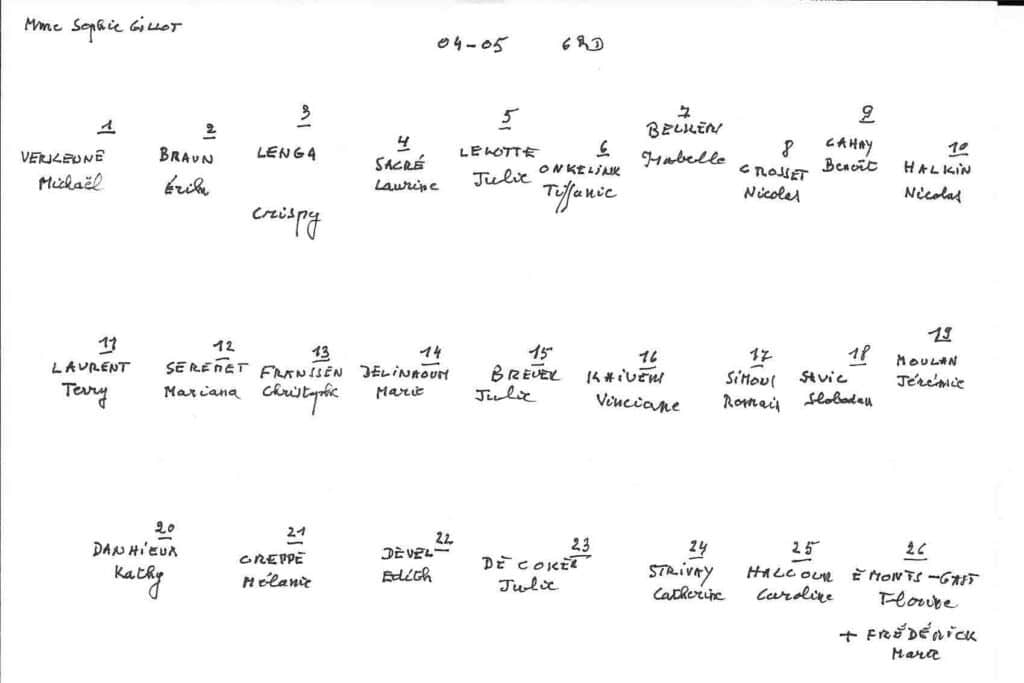 Mme Sophie GILLOT
04-05 6RD
1 2 3 4 5 6 7 8 9 10
VERJEUNE BRAUN LENGA SACRÉ LELOTTE ONKELINK BELLEN CROSSET CAHAY HALKIN
Michaël Érika Crispy Laurine Julie Tiffanie Isabelle Nicolas Benoît Nicolas
11 12 13 14 15 16 17 18 19
LAURENT SEREMET FRANSSEN DELINAOUM BREUER KAIVERS SIMOUL SAVIC MOULAN
Terry Mariana Christophe Marie Julie Vinciane Romain Slobodan Jérémie
20 21 22 23 24 25 26
DANHIEUX GREPPE DEVEL DE COKER STRIVAY HALCOUR EMONTS-GAST
Kathy Mélanie Edith Julie Catherine Caroline Florine
+ FRÉDÉRICK
Marie